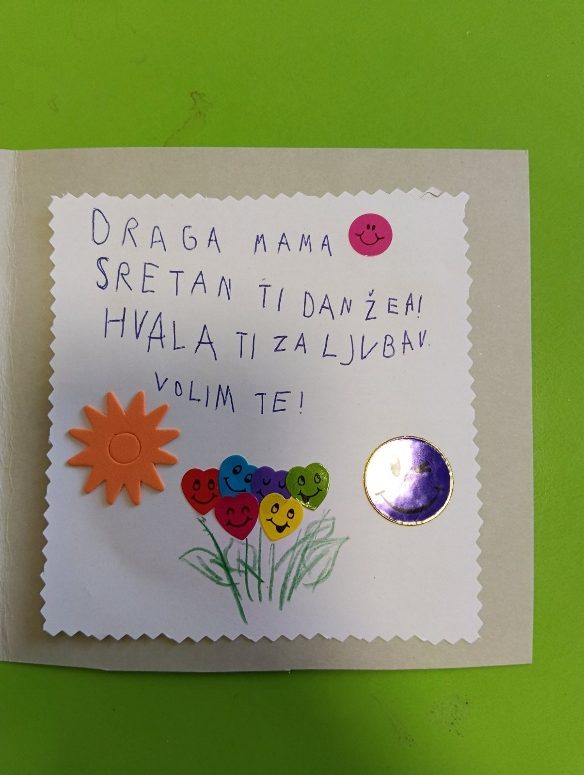 DRAGA MAMA
SRETAN TI DAN ŽEA!
HVALA TI ZA LJUBAV.
VOLIM TE!